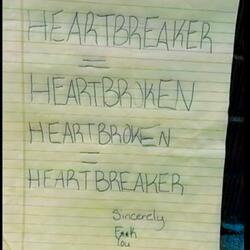 HEARTBREAKER
=
HEARTBROKEN
HEARTBROKEN
=
HEARTBREAKER
Sincerely
F**k
You